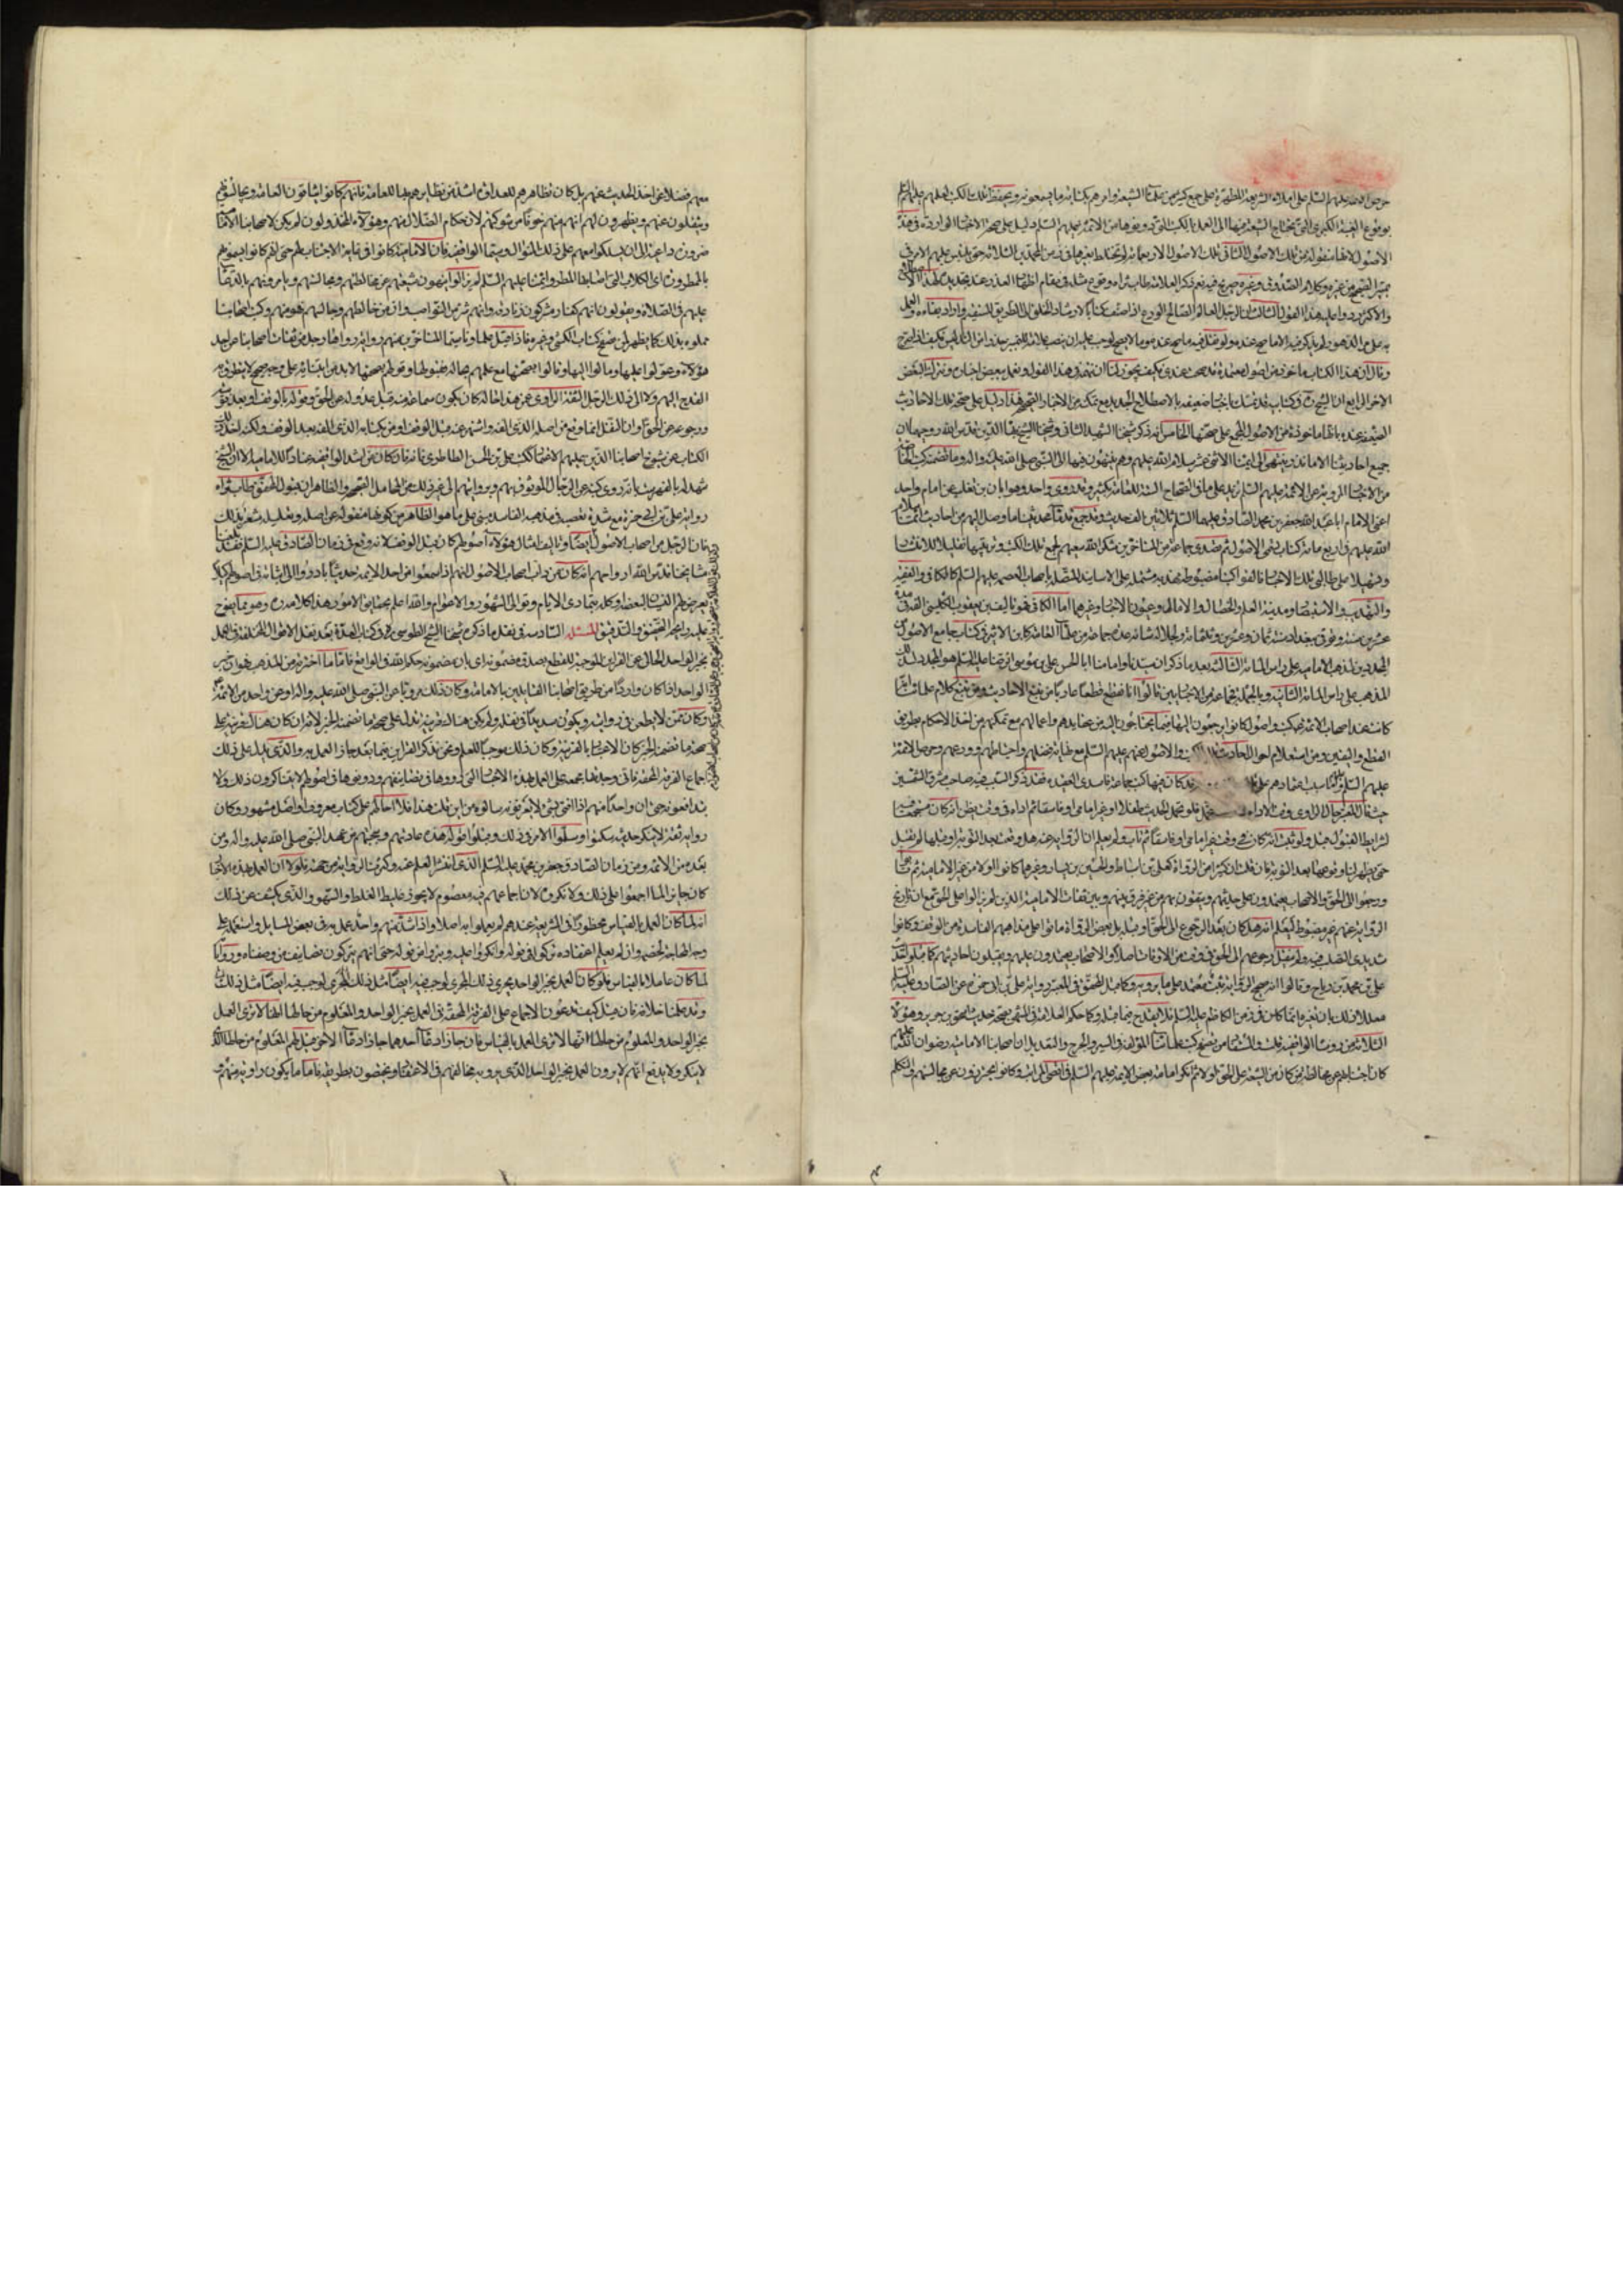 حرص الائمة عليهم السلم على املاء الشريعة المطهرة على جمع كثير من علماء الشيعة وامرهم بكتابة ما يسمعونه وبحفظ تلك الكتب لعلمهم عليهم السلم
بوقوع الغيبة الكبرى التي تحتاج الشيعة فيها الى العمل بالكتب التي دونوها من الائمة عليهم السلم دليل على صحة الاخبار الواردة في هذه
الاصول لانها منقولة من تلك الاصول الثاني تلك الاصول الاربعمائة لم تختلط بغيرها في زمن المحمدين الثلاثة حتى يلتبس عليهم الامر في
تمييز الصحيح من غيره وكلام الصدوق وغيره صريح فيه نعم ذكر العلامة طاب ثراه وقوع مثله في مقام اظهار العذر عند تجديد لهذا الاصطلاح
والاكثر ردوا عليه هذا القول الثالث ان الرجل العالم الصالح الورع اذا صنف كتابا لارشاد الخلق الى الطريق المستقيم واراد بقاءه والعمل
به على مر الدهور ولم يذكر فيه الا ما صح عنده ولو نقل فيه ما صح عنده وما لا يصح لوجب عليه ان ينصب علامة للتمييز
وقال ان هذا الكتاب ماخوذ من اصول معتمدة فكيف يجوز لنا ان نقدح هذا القول ونعمل ببعض اخباره ونترك البعض
الاخر الرابع ان الشيخ وكتابيه قد تمسك باخبار ضعيفة بالاصطلاح الجديد مع تمكنه من الاخبار الصحيحة هذا دليل على صحة تلك الاحاديث
الضعيفة عنده بانها ماخوذة من الاصول المجمع على صحتها الخامس انه ذكر شيخنا الشهيد الثاني وشيخنا الشيخ بهاء الدين قدس الله روحهما ان
جميع احاديثنا الا ما ندر ينتهي الى ائمتنا الاثني عشر سلام الله عليهم وهم ينتهون فيها الى النبي صلى الله عليه واله وما تضمنه كتب الخاصة
من الاخبار المروية عن الائمة عليهم السلم تزيد على ما في الصحاح الستة للعامة بكثير وقد روى واحد وهو ابان بن تغلب عن امام واحد
اعني الامام ابا عبد الله جعفر بن محمد الصادق عليهما السلم ثلاثين الف حديث وقد جمع قدماء محدثينا ما وصل اليهم من احاديث ائمتنا سلام
الله عليهم في اربع مائة كتاب تسمى الاصول ثم تصدى جماعة من المتاخرين شكر الله سعيهم لجمع تلك الكتب وترتيبها تقليلا للانتشار
وتسهيلا على طالبي تلك الاخبار فالفوا كتبا مضبوطة مهذبة مشتملة على الاسانيد المتصلة باصحاب العصمة عليهم السلم كالكافي والفقيه
والتهذيب والاستبصار ومدينة العلم والخصال والامالي وعيون الاخبار وغيرها اما الكافي فهو تاليف محمد بن يعقوب الكليني الفه في مدة
عشرين سنة وتوفى ببغداد سنة ثمان وعشرين وثلثمائة ولجلالة شانه عده جماعة من علماء العامة كابن الاثير في كتاب جامع الاصول من
المجددين لمذهب الامامية على راس المائة الثالثة بعد ما ذكر ان سيدنا وامامنا ابا الحسن علي بن موسى الرضا عليه السلم هو المجدد لذلك
المذهب على راس المائة الثانية وبالجملة فجماعة من الاخباريين قالوا انا نقطع قطعا عاديا من تتبع الاحاديث ومن تتبع كلام علمائنا انه
كانت عند اصحاب الائمة كتب واصول كانوا يرجعون اليها فيما يحتاجون اليه من عقايدهم واعمالهم مع تمكنهم من اخذ الاحكام بطريق
القطع واليقين ومن استعلام احوال احاديث والاصول عنهم عليهم السلم مع غاية فضلهم واحتياطهم وورعهم وحرص الائمة
عليهم السلم قد كان فيها كتب جماعة فاسدي العقيدة فقد ذكر السيد
حيث قال المعتبر حال الراوي وقت الاداء لا فلو تحمل الحديث طفلا او غير امامي او فاسقا ثم اداه في وقت يظن انه كان مستجمعا
لشرايط القبول قبل ولو ثبت انه كان في وقت غير امامي او فاسقا ثم تاب ولم يعلم ان الرواية عنه هل وقعت بعد التوبة او قبلها لم تقبل
حتى يظهر لنا وقوعها بعد التوبة فان قلت ان كثيرا من الرواة كعلي بن اسباط والحسين بن يسار وغيرهما كانوا اولا من غير الامامية ثم تابوا
ورجعوا الى الحق والاصحاب يعتمدون على حديثهم ويثقون بهم من غير فرق بينهم وبين ثقات الامامية الذين لم يزالوا على الحق مع ان تاريخ
الرواية عنهم غير مضبوط ليعلم انه هل كان بعد الرجوع الى الحق او قبله بل بعض الرواة ماتوا على مذاهبهم الفاسدة من الوقف وكانوا
شديدي التصلب فيه ولم ينقل رجوعهم الى الحق في وقت من الاوقات اصلا والاصحاب يعتمدون عليهم ويقبلون احاديثهم كما قبلوا
علي بن محمد بن رباح وقالوا انه صحيح الرواية ثبت معتمد على ما يرويه وكما قبل المحقق في المعتبر رواية علي بن ابي حمزة عن الصادق عليه السلم
معللا ذلك بان تغيره انما كان في زمن الكاظم عليه السلم فلا يقدح فيما قبله وكما حكم العلامة في المنتهى بصحة حديث اسحق بن جرير وهؤلاء
الثلاثة من رؤساء الواقفية قلت المستفاد من تصفح كتب علمائنا المؤلفة في السير والجرح والتعديل ان اصحابنا الامامية رضوان الله عليهم
كان اجتنابهم عن مخالطة من كان من الشيعة على الحق اولا ثم انكر امامة بعض الائمة عليهم السلم في اقصى المراتب وكانوا يحترزون عن مجالستهم والتكلم
معهم فضلا عن اخذ الحديث عنهم بل كان تظاهرهم للعداوة اشد من تظاهرهم بها للعامة فانهم كانوا يتاقون العامة ويجالسونهم
وينقلون عنهم ويظهرون لهم انهم منهم خوفا من شوكتهم لان حكام الضلال منهم وهؤلاء المخذولون لم يكن لاصحابنا الامامية
ضرورة داعية الى ان يسلكوا معهم على ذلك المنوال وسيما الواقفة فان الامامية كانوا في غاية الاجتناب لهم حتى انهم كانوا يسمونهم
بالممطورة اي الكلاب التي اصابها المطر وائمتنا عليهم السلم لم يزالوا ينهون شيعتهم عن مخالطتهم ومجالستهم ويامرونهم بالدعاء
عليهم في الصلاة ويقولون انهم كفار مشركون زنادقة وانهم شر من النواصب وان من خالطهم وجالسهم فهو منهم وكتب اصحابنا
مملوءة بذلك كما يظهر لمن تصفح كتاب الكشي وغيره فاذا قبل علماؤنا سيما المتاخرين منهم رواية رواها رجل من ثقات اصحابنا عن احد
هؤلاء وعولوا عليها وما لوا اليها وقالوا بصحتها مع علمهم بحاله فقبولهم لها وقولهم بصحتها لا بد من ابتنائه على وجه صحيح لا يتطرق به
القدح اليهم ولا الى ذلك الرجل الثقة الراوي عمن هذا حاله كان يكون سماعه منه قبل عدوله عن الحق وقوله بالوقف او بعد توبته
ورجوعه الى الحق او ان النقل انما وقع من اصله الذي الفه واشتهر عنه قبل الوقف او من كتابه الذي الفه بعد الوقف ولكنه اخذ ذلك
الكتاب عن شيوخ اصحابنا الذين عليهم الاعتماد ككتب علي بن الحسن الطاطري فانه وان كان من اشد الواقفية عنادا للامامية الا ان الشيخ
شهد له بالفهرست بانه روى كتبه عن الرجال الموثوق بهم وبرواياتهم الى غير ذلك من المحامل الصحيحة والظاهر ان قبول المحقق طاب ثراه
رواية علي بن ابي حمزة مع شدة تعصبه في مذهبه الفاسد مبني على ما هو الظاهر من كونها منقولة عن اصله وتعليله يشعر بذلك
فان الرجل من اصحاب الاصول ايضا وتاليف امثال هؤلاء اصولهم كان قبل الوقف لانه وقع في زمان الصادق عليه السلم فقد بلغنا
مشايخنا قدس الله ارواحهم انه كان من داب اصحاب الاصول انهم اذا سمعوا من احد الائمة حديثا بادروا الى اثباته في اصولهم لئلا
يعرض لهم النسيان لبعضه او كله بتمادي الايام وتوالي الشهور والاعوام والله اعلم بحقايق الامور هذا كلامه وهو مما يفوح
عليه روايح التحقيق والتدقيق المسئلة السادسة في نقل ما ذكره شيخنا الشيخ الطوسي في كتاب العدة بعد نقل الاقوال المختلفة في العمل
بخبر الواحد الخالي عن القراين الموجبة للقطع بصدق مضمونه اي بان مضمونه حكم الله في الواقع فاما ما اخترته من المذهب هو ان خبر
الواحد اذا كان واردا من طريق اصحابنا القايلين بالامامة وكان ذلك مرويا عن النبي صلى الله عليه واله او عن واحد من الائمة
وكان ممن لا يطعن في روايته ويكون سديدا في نقله ولم يكن هناك قرينة تدل على صحة ما تضمنه الخبر لانه ان كان هناك قرينة تدل على
صحة ما تضمنه الخبر كان الاعتبار بالقرينة وكان ذلك موجبا للعلم ونحن نذكر القراين فيما بعد جاز العمل به والذي يدل على ذلك
اجماع الفرقة المحقة فاني وجدتها مجمعة على العمل بهذه الاخبار التي رووها في تصانيفهم ودونوها في اصولهم لا يتناكرون ذلك ولا
يتدافعونه حتى ان واحدا منهم اذا افتى بشئ لا يعرفونه سالوه من اين قلت هذا فاذا احالهم على كتاب معروف او اصل مشهور وكان
رواية ثقة لا ينكر حديثه سكتوا وسلموا الامر في ذلك وقبلوا قوله هذه عادتهم وسجيتهم من عهد النبي صلى الله عليه واله ومن
بعده من الائمة ومن زمان الصادق جعفر بن محمد عليه السلم الذي انتشر العلم عنه وكثرت الرواية من جهته فلولا ان العمل بهذه الاخبار
كان جايزا لما اجمعوا على ذلك ولانكروه لان اجماعهم فيه معصوم لا يجوز عليه الغلط والسهو والذي يكشف عن ذلك
انه لما كان العمل بالقياس محظورا في الشريعة عندهم لم يعملوا به اصلا واذا شذ منهم واحد عمل به في بعض المسايل واستعمله على
وجه المحاجة لخصمه وان لم يعلم اعتقاده تركوا قوله وانكروا عليه وتبرؤا من قوله حتى انهم يتركون تصانيف من وصفناه ورواياته
لما كان عاملا بالقياس فلو كان العمل بخبر الواحد يجري ذلك المجرى لوجب فيه ايضا مثل ذلك وقد علمنا خلافه
وقد علمنا خلافه فان قيل كيف تدعون الاجماع على الفرقة المحقة في العمل بخبر الواحد والمعلوم من حالها انها لا ترى العمل
بخبر الواحد والمعلوم من حالها انها لا ترى العمل بالقياس فان جاز ادعاء احدهما جاز ادعاء الاخر قيل لهم المعلوم من حالها الذي
لا ينكر ولا يدفع انهم لا يرون العمل بخبر الواحد الذي يرويه مخالفهم في الاعتقاد ويختصون بطريقه فاما ما يكون راويه منهم